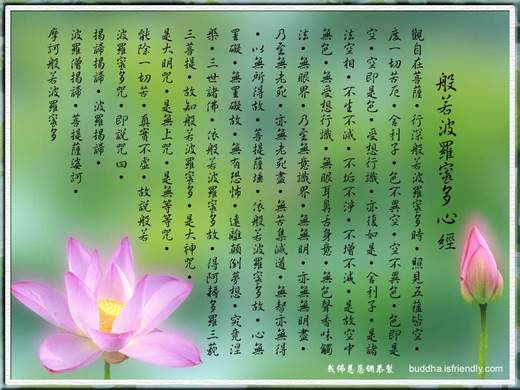 般若波羅蜜多心經
觀自在菩薩・行深般若波羅蜜多時・照見五蘊皆空・
度一切苦厄・舍利子・色不異空・空不異色・色即是
空・空即是色・受想行識・亦復如是・舍利子・是諸
法空相・不生不滅・不垢不淨・不增不減・是故空中
無色・無受想行識・無眼耳鼻舌身意・無色聲香味觸
法・無眼界・乃至無意識界・無無明・亦無無明盡・
乃至無老死・亦無老死盡・無苦集滅道・無智亦無得
・以無所得故・菩提薩埵・依般若波羅蜜多故・心無
罣礙・無罣礙故・無有恐怖・遠離顛倒夢想・究竟涅
槃・三世諸佛・依般若波羅蜜多故・得阿耨多羅三藐
三菩提・故知般若波羅蜜多・是大神咒・
是大明咒・是無上咒・是無等等咒・
能除一切苦・真實不虛・故說般若
波羅蜜多咒・即說咒曰・
揭諦揭諦・波羅揭諦・
波羅僧揭諦・菩提薩婆訶・
摩訶般若波羅蜜多
buddha.isfriendly.com